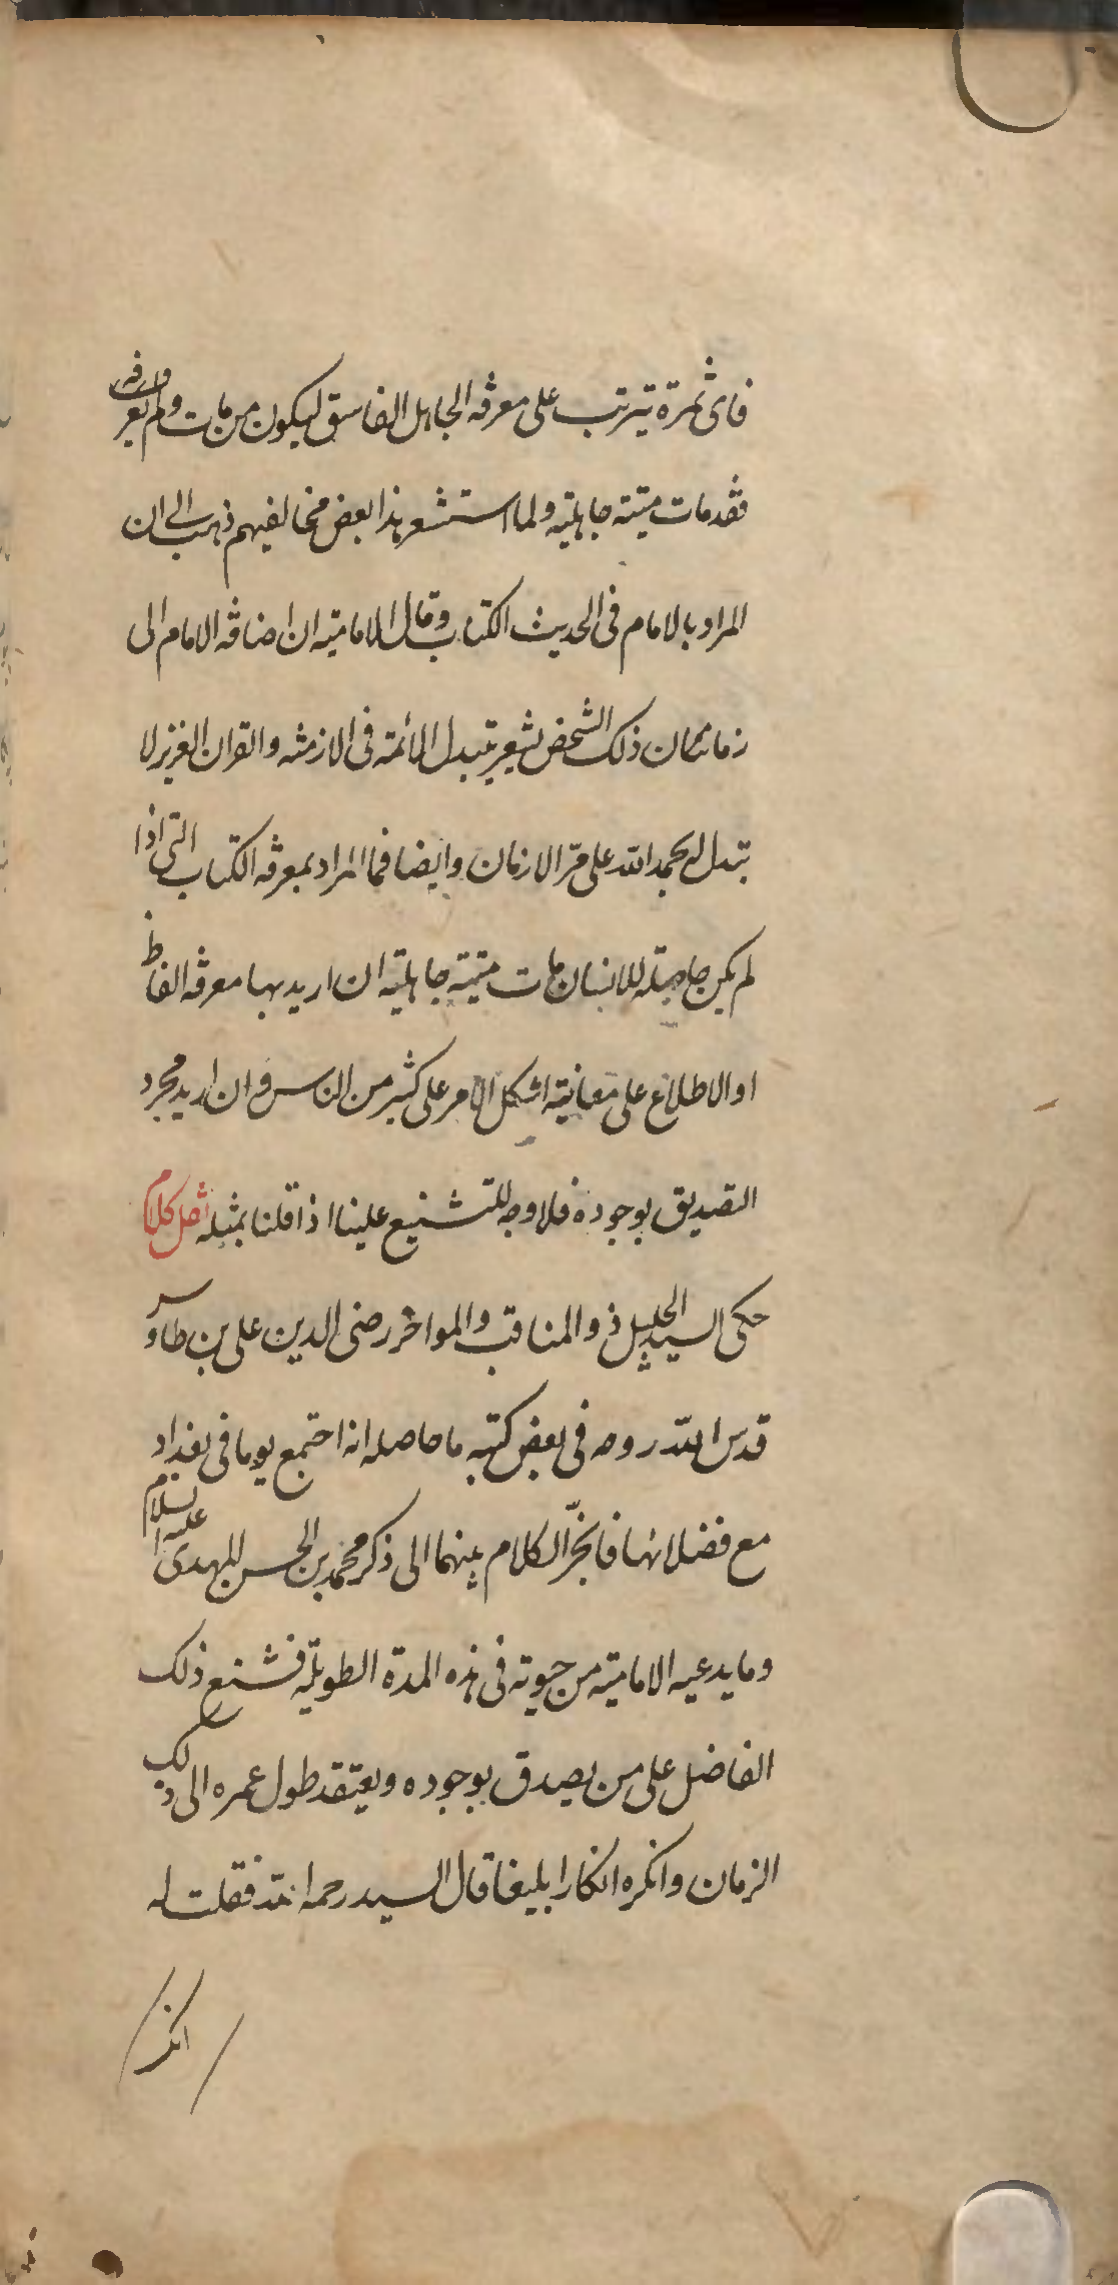 فای ثمرة تترتب على معرفة الجاهل الفاسق ليكون من مات ولم يعرفه
فقد مات ميتة جاهلية ولما استشعر هذا بعض مخالفيهم ذهب الى ان
المراد بالامام فى الحديث الكتاب وقال الامامية ان اضافة الامام الى
زمان ذلك الشخص يشعر بتبدل الائمة فى الازمنة والقران العزيز لا
تبدل له بحمد الله على مرّ الازمان وايضا فما المراد بمعرفة الكتاب التى اذا
لم يكن حاصلة للانسان مات ميتة جاهلية ان اريد بها معرفة الفاظه
او الاطلاع على معانيه اشكل الامر على كثير من الناس وان اريد مجرد
التصديق بوجوده فلا وجه للتشنيع علينا اذا قلنا بمثله نقل كلام
حكى السيد الجليل ذو المناقب والمفاخر رضى الدين على بن طاوس
قدس الله روحه فى بعض كتبه ما حاصله انه اجتمع يوما فى بغداد
مع فضلائها فانجرّ الكلام بينهما الى ذكر محمد بن الحسن المهدى عليه السلام
وما يدعيه الامامية من حيوته فى هذه المدة الطويلة فشنع ذلك
الفاضل على من يصدق بوجوده ويعتقد طول عمره الى ذلك
الزمان وانكره انكارا بليغا قال السيد رحمه الله فقلت له